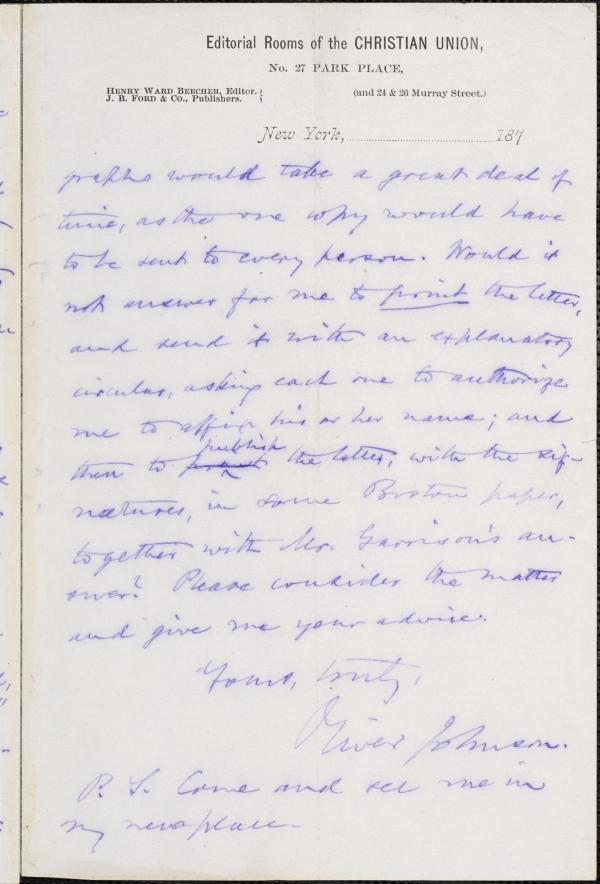 Editorial Rooms of the CHRISTIAN UNION,
No. 27 PARK PLACE,
HENRY WARD BEECHER, Editor.
J. B. FORD & CO., Publishers.
(and 24 & 26 Murray Street.)
New York, 187
graphs would take a great deal of
time, as the one copy would have
to be sent to every person. Would it
not answer for me to print the letter,
and send it with an explanatory
circular, asking each one to authorize
me to affix his or her name; and
publish
then to print the letter, with the sig-
natures, in some Boston paper,
together with Mr. Garrison's an-
swer? Please consider the matter
and give me your advice.
Yours, truly,
Oliver Johnson.
P. S. Come and see me in
my new place.